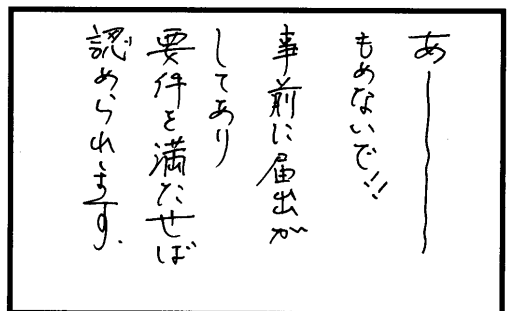 あ〜〜〜
もめないで!!
事前に届出が
してあり
要件を満たせば
認められます.